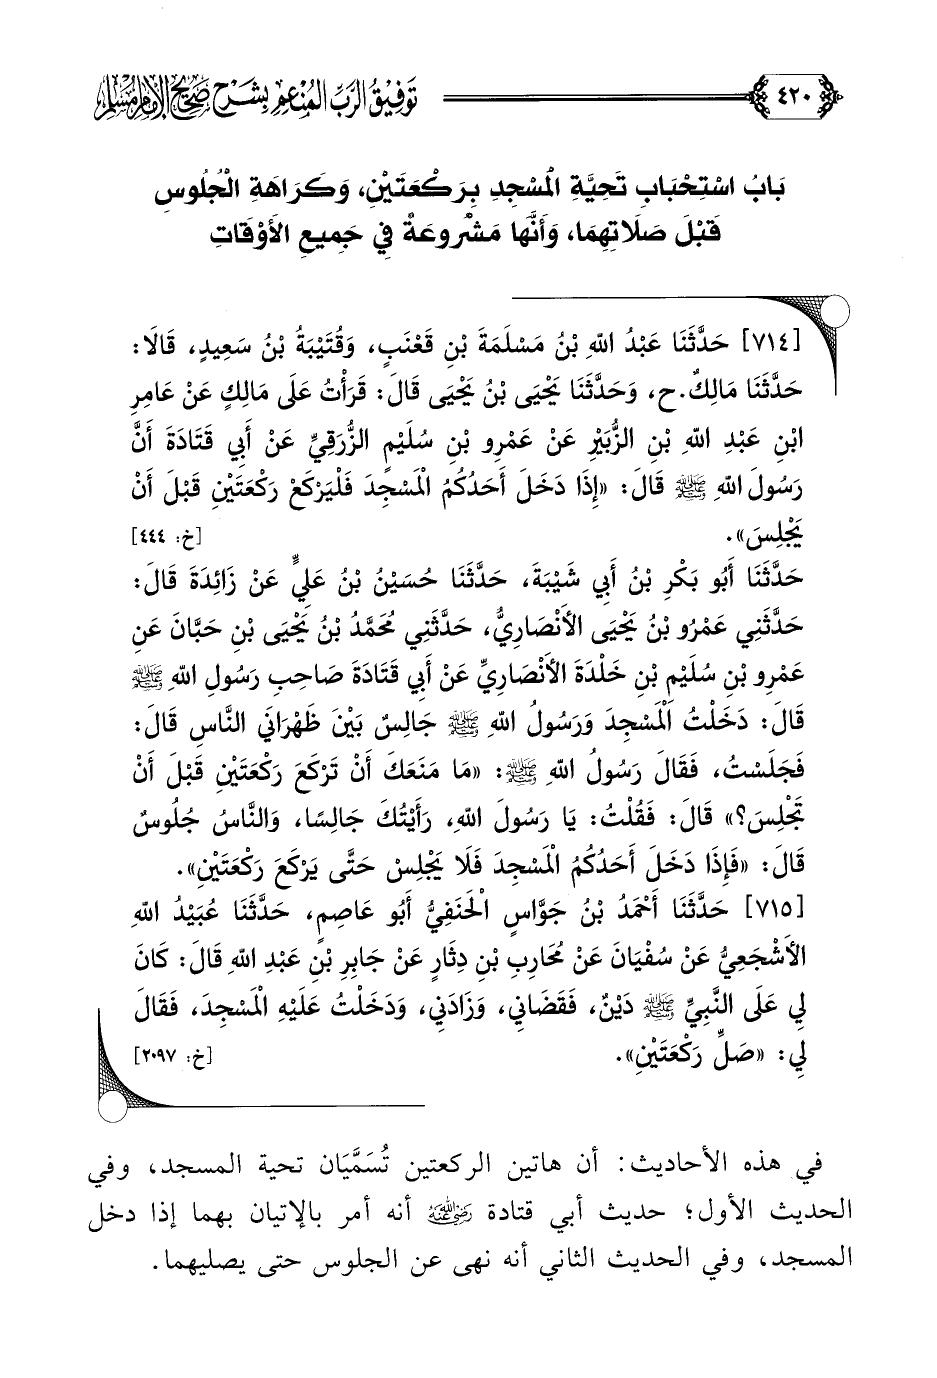 ٤٢٠ توفيق الرب المنعم بشرح صحيح الإمام مسلم
بَابُ اسْتِحْبَابِ تَحِيَّةِ الْمَسْجِدِ بِرَكْعَتَيْنِ، وَكَرَاهَةِ الْجُلُوسِ
قَبْلَ صَلَاتِهِمَا، وَأَنَّهَا مَشْرُوعَةٌ فِي جَمِيعِ الأَوْقَاتِ
[٧١٤] حَدَّثَنَا عَبْدُ اللهِ بْنُ مَسْلَمَةَ بْنِ قَعْنَبٍ، وَقُتَيْبَةُ بْنُ سَعِيدٍ، قَالَا:
حَدَّثَنَا مَالِكٌ. ح، وَحَدَّثَنَا يَحْيَى بْنُ يَحْيَى قَالَ: قَرَأْتُ عَلَى مَالِكٍ عَنْ عَامِرِ
ابْنِ عَبْدِ اللهِ بْنِ الزُّبَيْرِ عَنْ عَمْرِو بْنِ سُلَيْمٍ الزُّرَقِيِّ عَنْ أَبِي قَتَادَةَ أَنَّ
رَسُولَ اللهِ ﷺ قَالَ: «إِذَا دَخَلَ أَحَدُكُمُ الْمَسْجِدَ فَلْيَرْكَعْ رَكْعَتَيْنِ قَبْلَ أَنْ
يَجْلِسَ». [خ: ٤٤٤]
حَدَّثَنَا أَبُو بَكْرِ بْنُ أَبِي شَيْبَةَ، حَدَّثَنَا حُسَيْنُ بْنُ عَلِيٍّ عَنْ زَائِدَةَ قَالَ:
حَدَّثَنِي عَمْرُو بْنُ يَحْيَى الأَنْصَارِيُّ، حَدَّثَنِي مُحَمَّدُ بْنُ يَحْيَى بْنِ حَبَّانَ عَنِ
عَمْرِو بْنِ سُلَيْمِ بْنِ خَلْدَةَ الأَنْصَارِيِّ عَنْ أَبِي قَتَادَةَ صَاحِبِ رَسُولِ اللهِ ﷺ
قَالَ: دَخَلْتُ الْمَسْجِدَ وَرَسُولُ اللهِ ﷺ جَالِسٌ بَيْنَ ظَهْرَانَيِ النَّاسِ قَالَ:
فَجَلَسْتُ، فَقَالَ رَسُولُ اللهِ ﷺ: «مَا مَنَعَكَ أَنْ تَرْكَعَ رَكْعَتَيْنِ قَبْلَ أَنْ
تَجْلِسَ؟» قَالَ: فَقُلْتُ: يَا رَسُولَ اللهِ، رَأَيْتُكَ جَالِسًا، وَالنَّاسُ جُلُوسٌ
قَالَ: «فَإِذَا دَخَلَ أَحَدُكُمُ الْمَسْجِدَ فَلَا يَجْلِسْ حَتَّى يَرْكَعَ رَكْعَتَيْنِ».
[٧١٥] حَدَّثَنَا أَحْمَدُ بْنُ جَوَّاسٍ الْحَنَفِيُّ أَبُو عَاصِمٍ، حَدَّثَنَا عُبَيْدُ اللهِ
الأَشْجَعِيُّ عَنْ سُفْيَانَ عَنْ مُحَارِبِ بْنِ دِثَارٍ عَنْ جَابِرِ بْنِ عَبْدِ اللهِ قَالَ: كَانَ
لِي عَلَى النَّبِيِّ ﷺ دَيْنٌ، فَقَضَانِي، وَزَادَنِي، وَدَخَلْتُ عَلَيْهِ الْمَسْجِدَ، فَقَالَ
لِي: «صَلِّ رَكْعَتَيْنِ». [خ: ٢٠٩٧]
في هذه الأحاديث: أن هاتين الركعتين تُسَمَّيَان تحية المسجد، وفي
الحديث الأول؛ حديث أبي قتادة رضي الله عنه أنه أمر بالإتيان بهما إذا دخل
المسجد، وفي الحديث الثاني أنه نهى عن الجلوس حتى يصليهما.